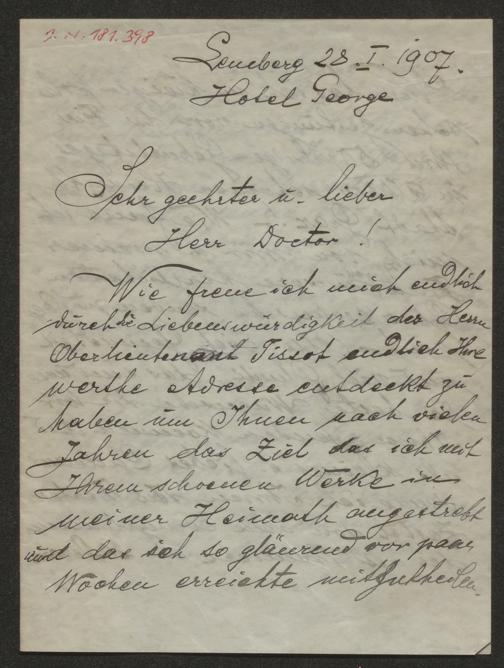 J. N. 181.398
Lemberg 28. I. 1907.
Hotel George
Sehr geehrter u. lieber
Herr Doctor!
Wie freue ich mich endlich
durch die Liebenswürdigkeit des Herrn
Oberlieutenant Tissot endlich Ihre
werthe Adresse entdeckt zu
haben um Ihnen nach vielen
Jahren das Ziel das ich mit
Ihrem schoenen Werke in
meiner Heimath angestrebt
und das ich so glänzend vor paar
Wochen erreichte mitzutheilen.